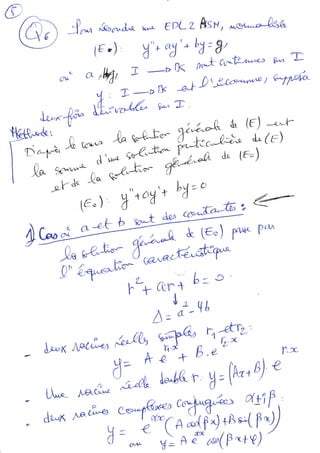 5
Q6 Pour résoudre une EDL2 ASM, normalisée
(E.): y"+ay'+by=g,
où a, b, g, I → K sont continues sur I
y: I → K est l'inconnue, supposée
deux fois dérivables sur I.
Méthode:
D'après le cours la solution générale de (E) est
la somme d'une solution particulière de (E)
et de la solution générale de (E0)
(E0): y"+ay'+by=0
1) Cas où a et b sont des constantes: ←
la solution générale de (E0) passe par
l'équation caractéristique
r²+ar+b=0.
↓
Δ=a²-4b
- deux racines réelles simples r1 et r2:
y= A e^{r1x} + B.e^{r2x}
- Une racine réelle double r: y=(Ax+B) e^{r.x}
- deux racines complexes conjuguées α±iβ:
y= e^{αx}(A cos(βx)+B sin(βx))
ou y= A e^{αx} cos(βx+φ)